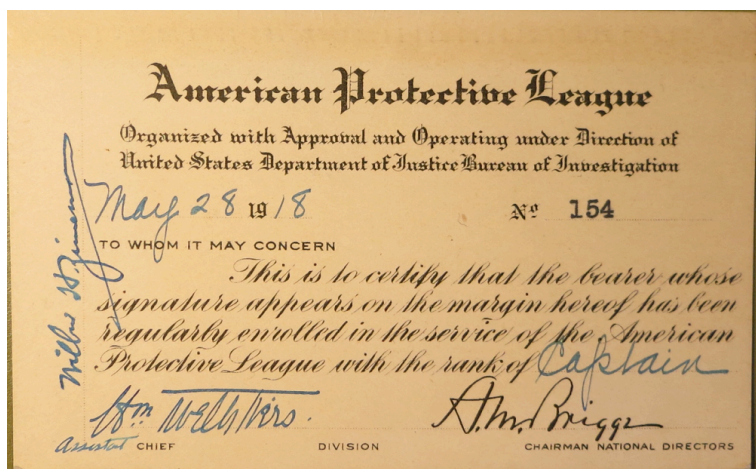 American Protective League
Organized with Approval and Operating under Direction of
United States Department of Justice Bureau of Investigation
May 28 1918 No 154
TO WHOM IT MAY CONCERN
This is to certify that the bearer whose
signature appears on the margin hereof has been
regularly enrolled in the service of the American
Protective League with the rank of Captain
Wm A. M. Briggs
Assistat CHIEF DIVISION CHAIRMAN NATIONAL DIRECTORS
Wilbur H.